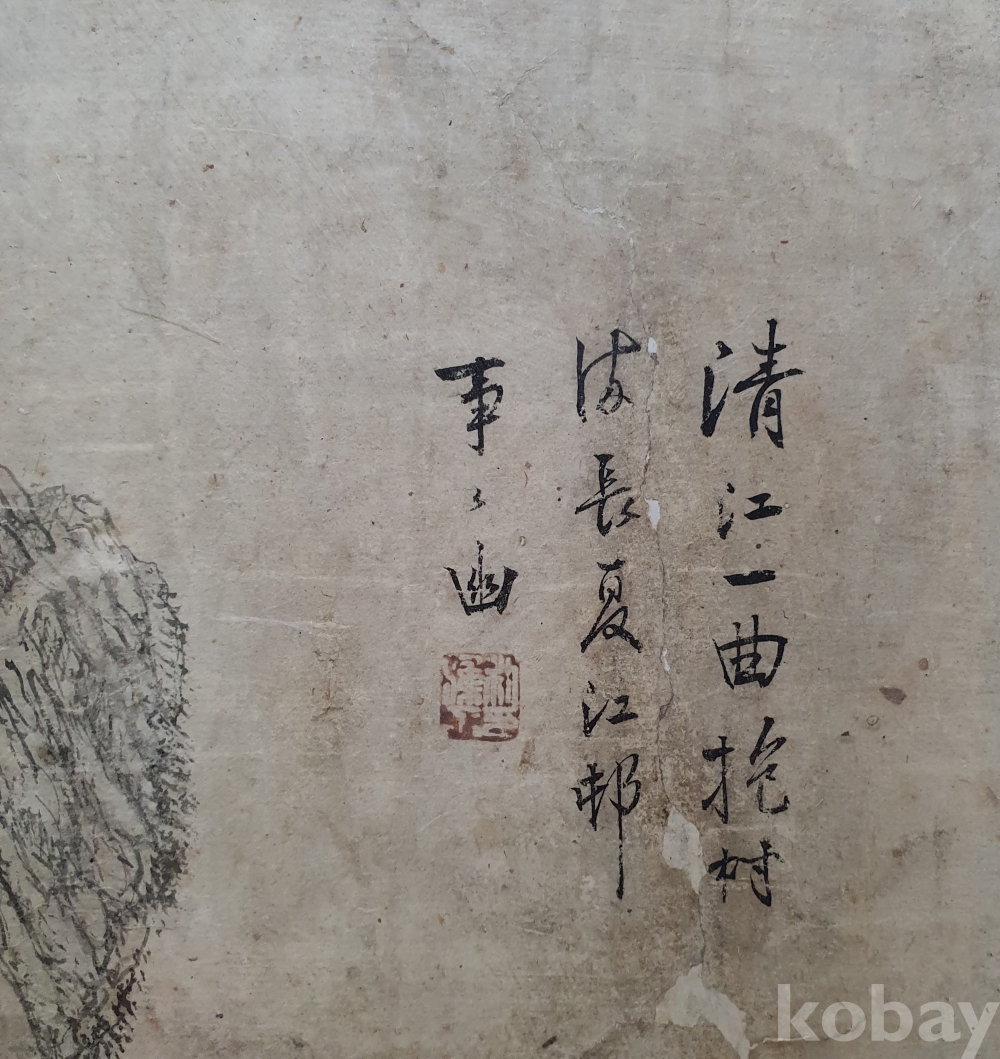 清江一曲抱村
流長夏江邨
事〻幽
kobay